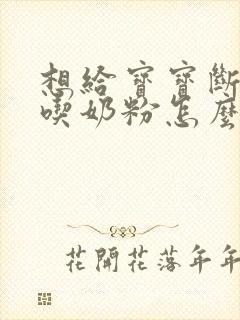 想給寶寶斷
喫奶粉怎麼
花開花落年年